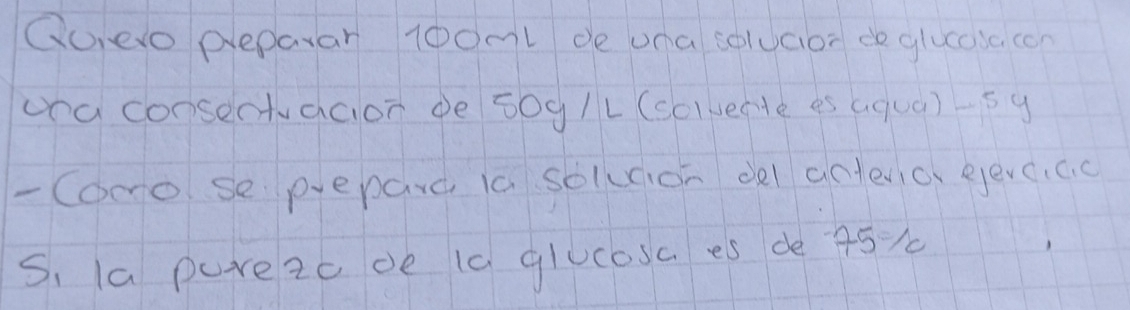 Quiero preparar 100ml de una solucion de glucosa con
una consentracion de 50g/L (solvente es agua) - 5g
- Como se prepara la solucion del anterior ejercicio
Si la pureza de la glucosa es de 75%